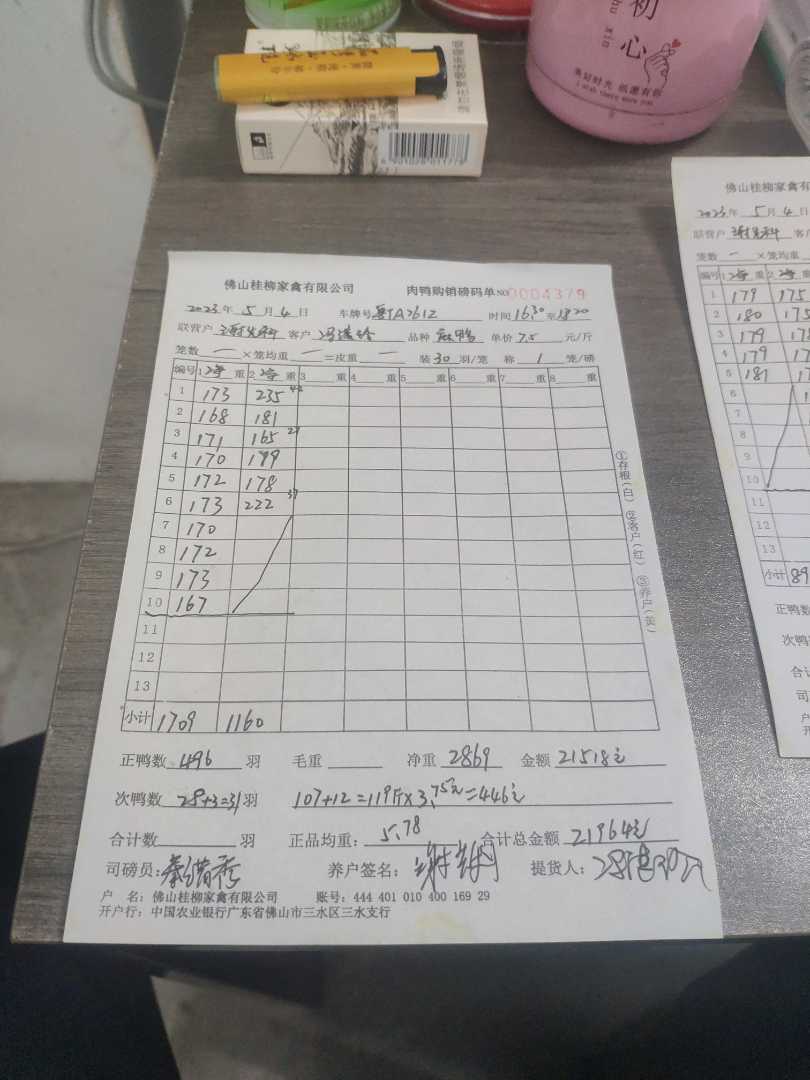 初
chu
xin
心
美好时光 纸愿有你
6 901028 011778
佛山桂柳家禽有限公司 肉鸭购销磅码单 NO 0004379
2023年 5 月 4 日 车牌号 粤TA2612 时间 1630至1820
联营户 客户 品种 麻鸭 单价 7.5 元/斤
笼数 一 ×笼均重 一 =皮重 一 装 30 羽/笼 称 1 笼/磅
编号 1 净 重 2 净 重 3 重 4 重 5 重 6 重 7 重 8 重
1 173 235
2 168 181
3 171 165
4 170 179
5 172 178
6 173 222 37
7 170
8 172
9 173
10 167
11
12
13
小计 1709 1160
①存根(白) ②客户(红) ③养户(黄)
正鸭数 496 羽 毛重 净重 2869 金额 21518元
次鸭数 28+3=31 羽 107+12=119斤×3.75元=446元
合计数 羽 正品均重: 5.78 合计总金额 21964元
司磅员: 养户签名: 提货人:
户 名: 佛山桂柳家禽有限公司 账号: 444 401 010 400 169 29
开户行: 中国农业银行广东省佛山市三水区三水支行
佛山桂柳家禽有
2023年 5 月 4 日
联营户 客
笼数 一 ×笼均重
编号 1 净 重 2 净 重
1 179 175
2 180 175
3 179
4 179
5 181
6
7
8
9
10
11
12
13
小计 89
正鸭数
次鸭
合计
司
户
开